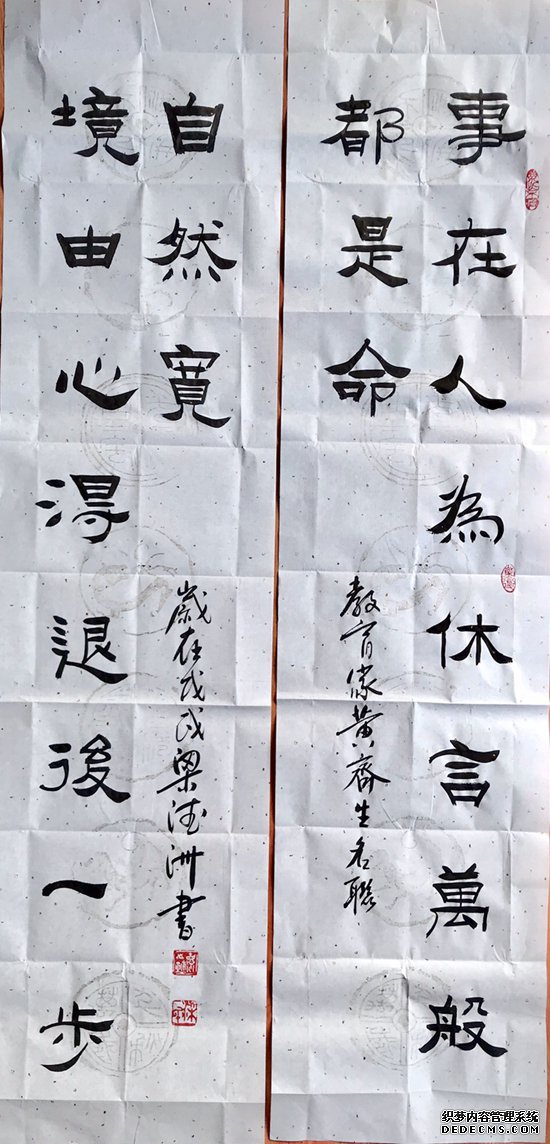 事在人為休言萬般
都是命
教育家黄齊生名聯
境由心得退後一步
自然寬
歲在戊戌梁德洲書
织梦内容管理系统
DEDECMS.COM